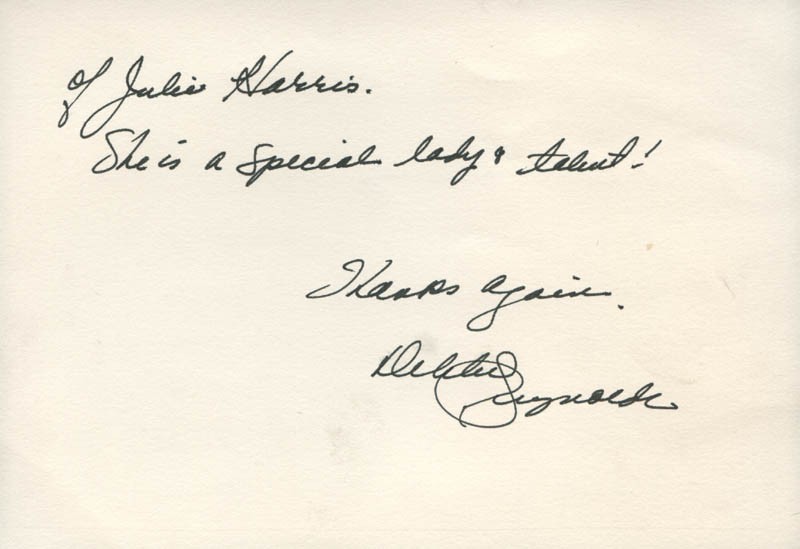 of Julie Harris.
She is a special lady & talent!
Thanks again.
Debbie Reynolds